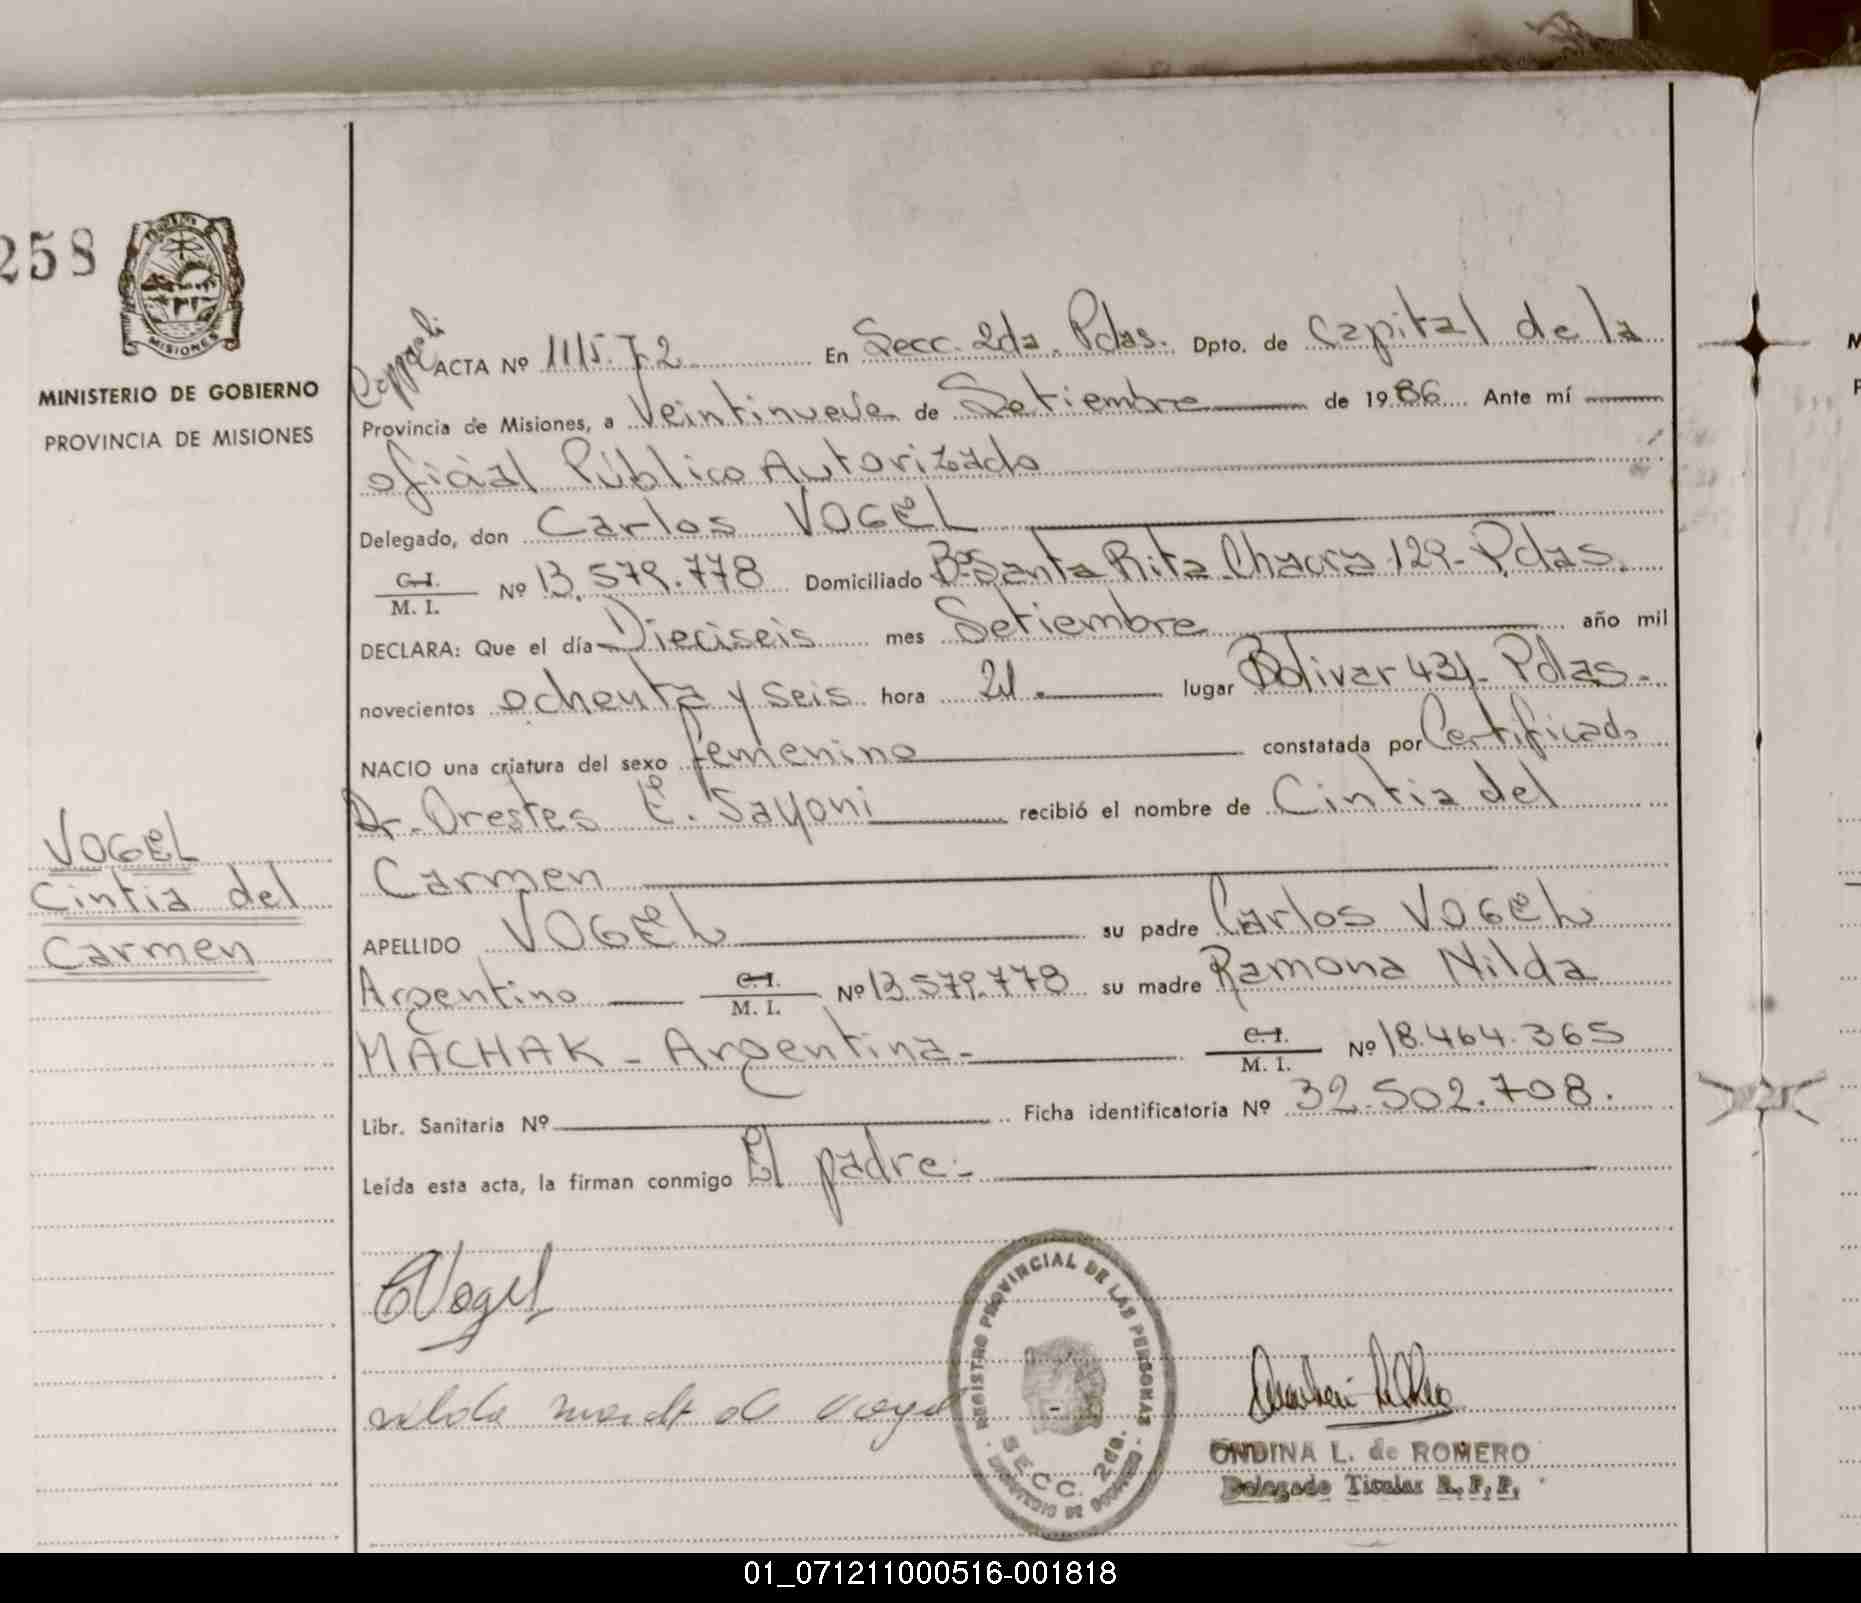 258
MISIONES
MINISTERIO DE GOBIERNO
PROVINCIA DE MISIONES
VOGEL
Cintia del
Carmen
ACTA Nº 1115. T-2 En Secc. 2da. Pdas. Dpto. de Capital de la
Provincia de Misiones, a Veintinueve de Setiembre de 1986 Ante mí
oficial Público Autorizado
Delegado, don Carlos VOGEL
C.I. / M. I. Nº 13.579.778 Domiciliado Bº Santa Rita Chacra 129- Pdas.
DECLARA: Que el día Dieciseis mes Setiembre año mil
novecientos ochenta y seis hora 21. lugar Bolivar 431- Pdas.
NACIO una criatura del sexo femenino constatada por Certificado
Dr. Orestes E. Sayoni recibió el nombre de Cintia del
Carmen
APELLIDO VOGEL su padre Carlos VOGEL
Argentino C.I. / M. I. Nº 13.579.778 su madre Ramona Nilda
MACHAK - Argentina- C.I. / M. I. Nº 18.464.365
Libr. Sanitaria Nº Ficha identificatoria Nº 32.502.708.
Leída esta acta, la firman conmigo El padre.-
CVogel
REGISTRO PROVINCIAL DE LAS PERSONAS
SECC. 2da.
MINISTERIO DE GOBIERNO
ONDINA L. de ROMERO
Delegado Titular R.P.P.
01_071211000516-001818